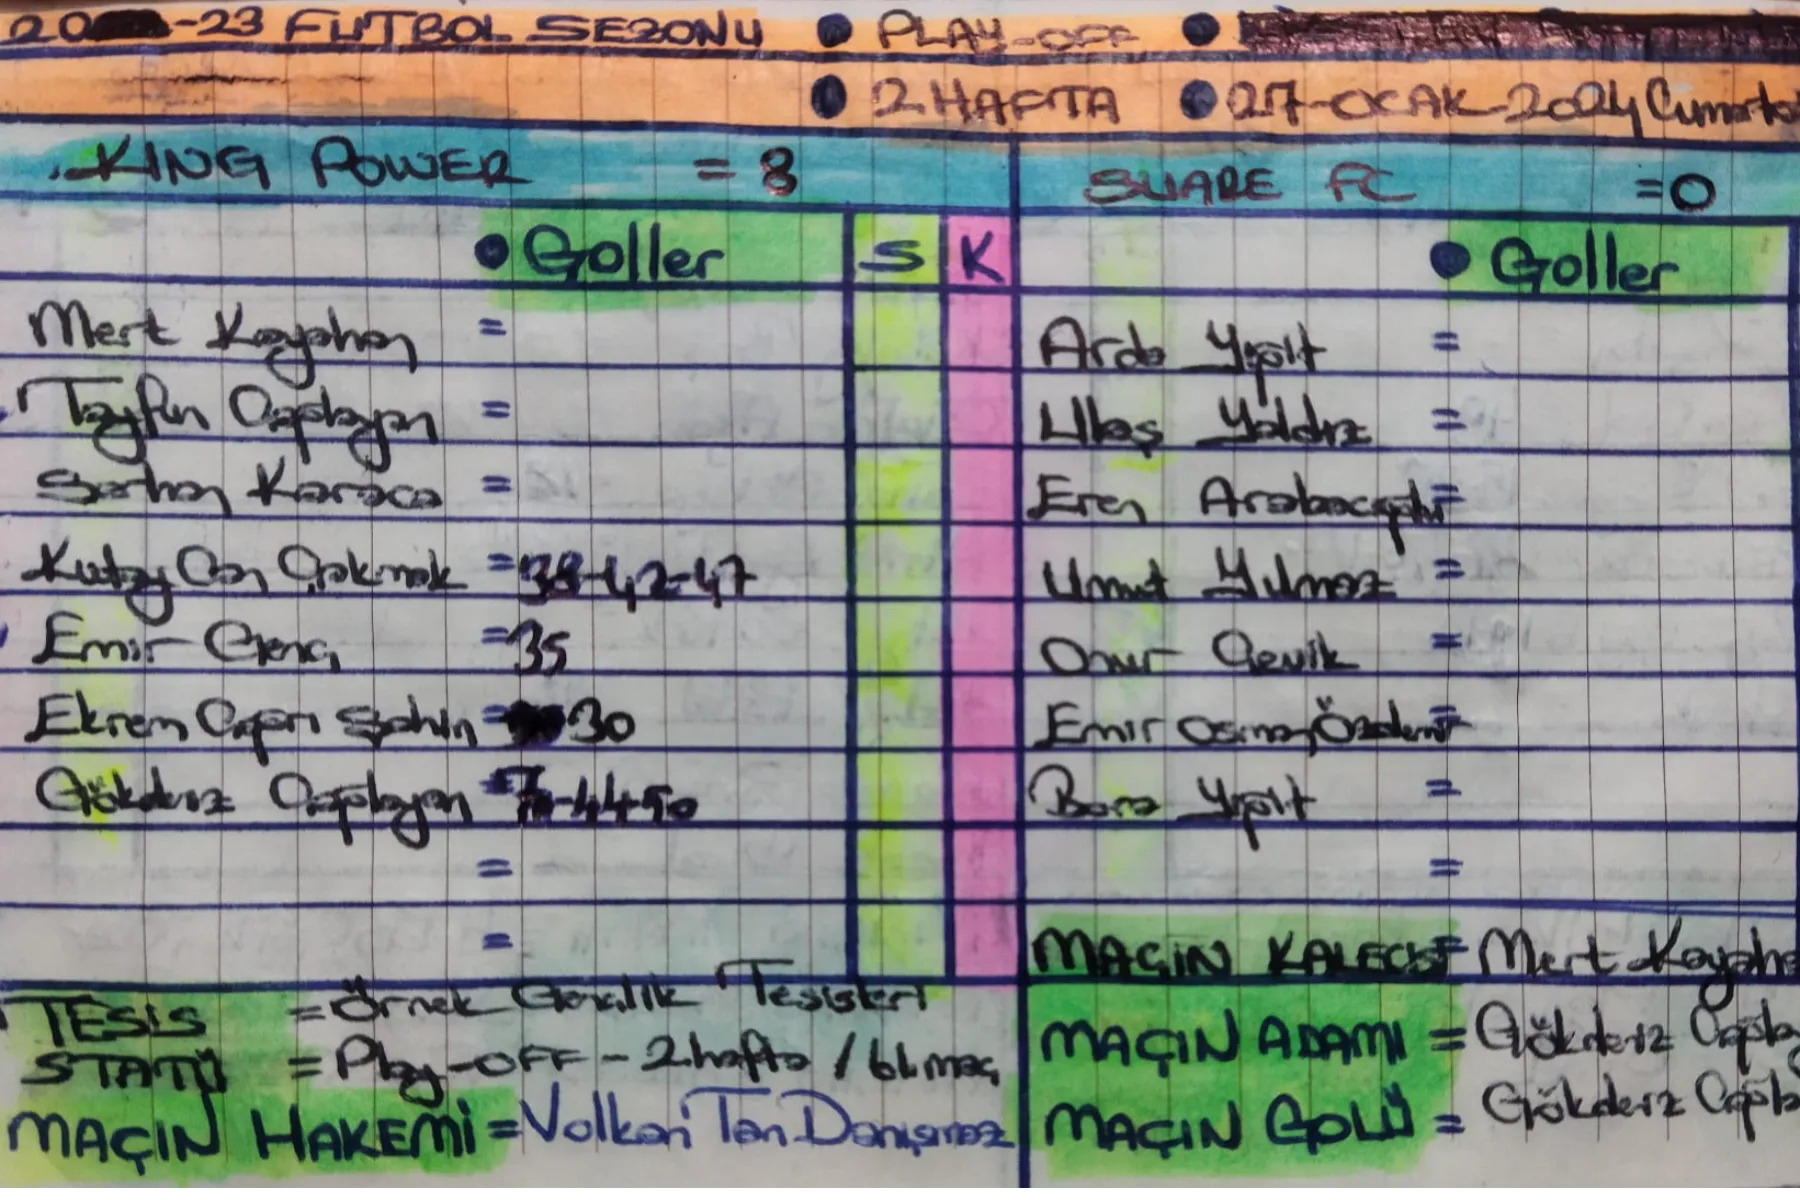 20 -23 FUTBOL SEZONU ● PLAY-OFF ●
● 2.HAFTA ● 27-OCAK-2024 Cumarte
KING POWER = 8
SUARE FC =0
● Goller S K
● Goller
Mert Kayahan =
Arda Yiğit =
Tayfun Çaplayan =
Ulaş Yaldız =
Serhan Karaca =
Eren =
Kutay Can Çakmak = 38-42-47
Umut Yılmaz =
Emir Genç =35
Onur Çevik =
Ekrem Çapri Şahin = 30
Emir Osman Özdemir =
Gökdeniz Çaplayan = 7-44-50
Bora Yiğit =
=
=
=
MAÇIN KALECİSİ= Mert Kayaha
TESİS = Örnek Gençlik Tesisleri
STATÜ = Play-OFF - 2.hafta / 61.maç
MAÇIN HAKEMİ = Volkan Tan Danışmaz
MAÇIN ADAMI = Gökdeniz Çapla
MAÇIN GOLÜ = Gökdeniz Çapla